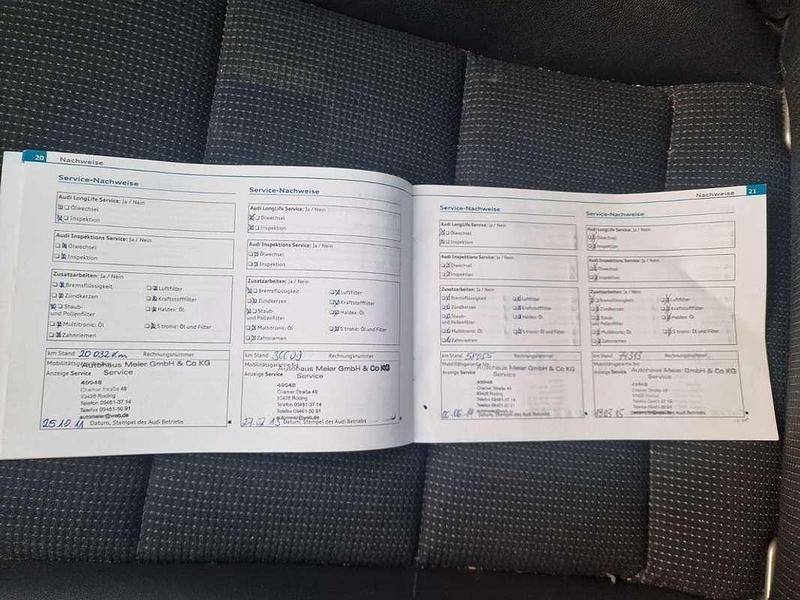 20 Nachweise
Service-Nachweise
Audi LongLife Service: Ja / Nein
Ölwechsel
Inspektion
Audi Inspektions Service: Ja / Nein
Ölwechsel
Inspektion
Zusatzarbeiten: Ja / Nein
Bremsflüssigkeit Luftfilter
Zündkerzen Kraftstofffilter
Staub- Haldex: Öl
und Pollenfilter
Multitronic: Öl S tronic: Öl und Filter
Zahnriemen
km Stand 20 032 Km Rechnungsnummer
Mobilitätsgarantie bis
Autohaus Meier GmbH & Co KG
Anzeige Service Service
49948
Chamer Straße 48
93426 Roding
Telefon 09461-37 14
Telefax 09461-50 91
automeier@web.de
25.10 11 Datum, Stempel des Audi Betriebs
Service-Nachweise
Audi LongLife Service: Ja / Nein
Ölwechsel
Inspektion
Audi Inspektions Service: Ja / Nein
Ölwechsel
Inspektion
Zusatzarbeiten: Ja / Nein
Bremsflüssigkeit Luftfilter
Zündkerzen Kraftstofffilter
Staub- Haldex: Öl
und Pollenfilter
Multitronic: Öl S tronic: Öl und Filter
Zahnriemen
km Stand 36609 Rechnungsnummer
Mobilitätsgarantie bis
Autohaus Meier GmbH & Co KG
Anzeige Service Service
49948
Chamer Straße 48
93426 Roding
Telefon 09461-37 14
Telefax 09461-50 91
automeier@web.de
Datum, Stempel des Audi Betriebs
Nachweise 21
Service-Nachweise
Audi LongLife Service: Ja / Nein
Ölwechsel
Inspektion
Audi Inspektions Service: Ja / Nein
Ölwechsel
Inspektion
Zusatzarbeiten: Ja / Nein
Bremsflüssigkeit Luftfilter
Zündkerzen Kraftstofffilter
Staub- Haldex: Öl
und Pollenfilter
Multitronic: Öl S tronic: Öl und Filter
Zahnriemen
km Stand Rechnungsnummer
Mobilitätsgarantie bis
Autohaus Meier GmbH & Co KG
Anzeige Service Service
49948
Chamer Straße 48
93426 Roding
Telefon 09461-37 14
Telefax 09461-50 91
Datum, Stempel des Audi Betriebs
Service-Nachweise
Audi LongLife Service: Ja / Nein
Ölwechsel
Inspektion
Audi Inspektions Service: Ja / Nein
Ölwechsel
Inspektion
Zusatzarbeiten: Ja / Nein
Bremsflüssigkeit Luftfilter
Zündkerzen Kraftstofffilter
Staub- Haldex: Öl
und Pollenfilter
Multitronic: Öl S tronic: Öl und Filter
Zahnriemen
km Stand Rechnungsnummer
Mobilitätsgarantie bis
Autohaus Meier GmbH & Co KG
Anzeige Service Service
49948
Chamer Straße 48
93426 Roding
Telefon 09461-37 14
Telefax 09461-50 91
Datum, Stempel des Audi Betriebs